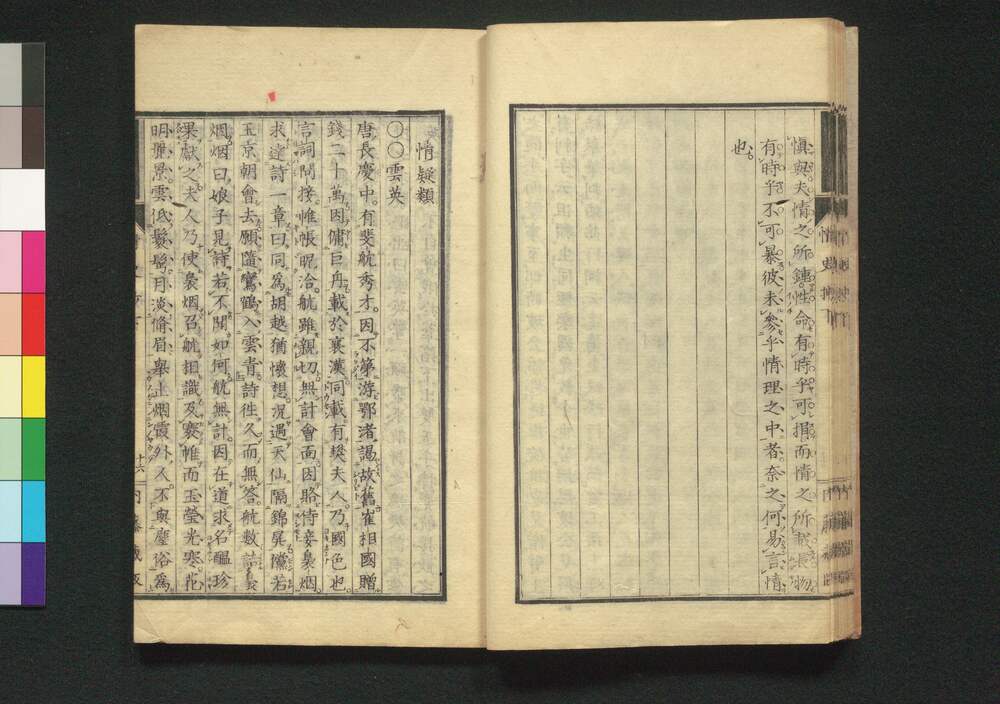 慎與夫情之所鍾性命有時乎可捐而情之所
有時乎不可暴彼未參乎情理之中者奈之何易言情
也
情史抄
情疑類
〇〇雲英
唐長慶中有斐航秀才因不第游鄂渚謁故舊崔相國贈
錢二十萬因傭巨舟載於襄漢同載有樊夫人乃國色也
言詞問接帷帳昵洽航雖親切無計會面因賂侍妾裊烟
求達詩一章曰同爲胡越猶懷想況遇天仙隔錦屏儻若
玉京朝會去願隨鸞鶴入雲青詩徃久而無答航數詰裊
烟烟曰娘子見詩若不聞如何航無計因在道求名醞珍
果獻之夫人乃使裊烟召航相識及褰帷而玉瑩光寒花
明麗景雲低鬟鬢月淡脩眉舉止烟霞外人不與塵俗爲
十六